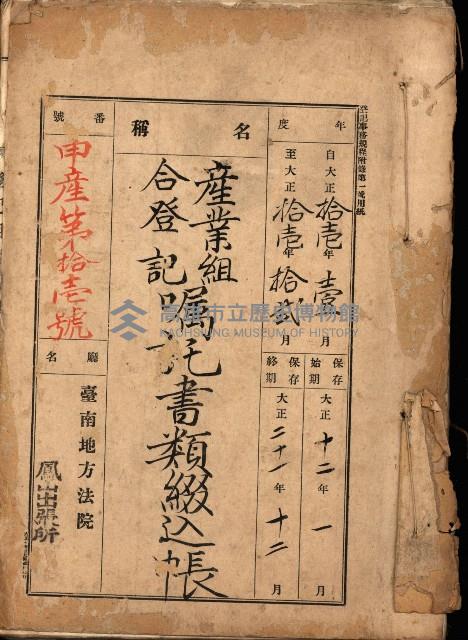 登記事務規程附錄第一號用紙
年度
自大正拾壹年壹月
至大正拾壹年拾貳月
保存始期
大正十二年一月
保存終期
大正二十一年十二月
名稱
産業組
合登記嘱托書類綴込帳
番號
申産第拾壹號
廳名
臺南地方法院
鳳山出張所
高雄市立歷史博物館
KAOHSIUNG MUSEUM OF HISTORY